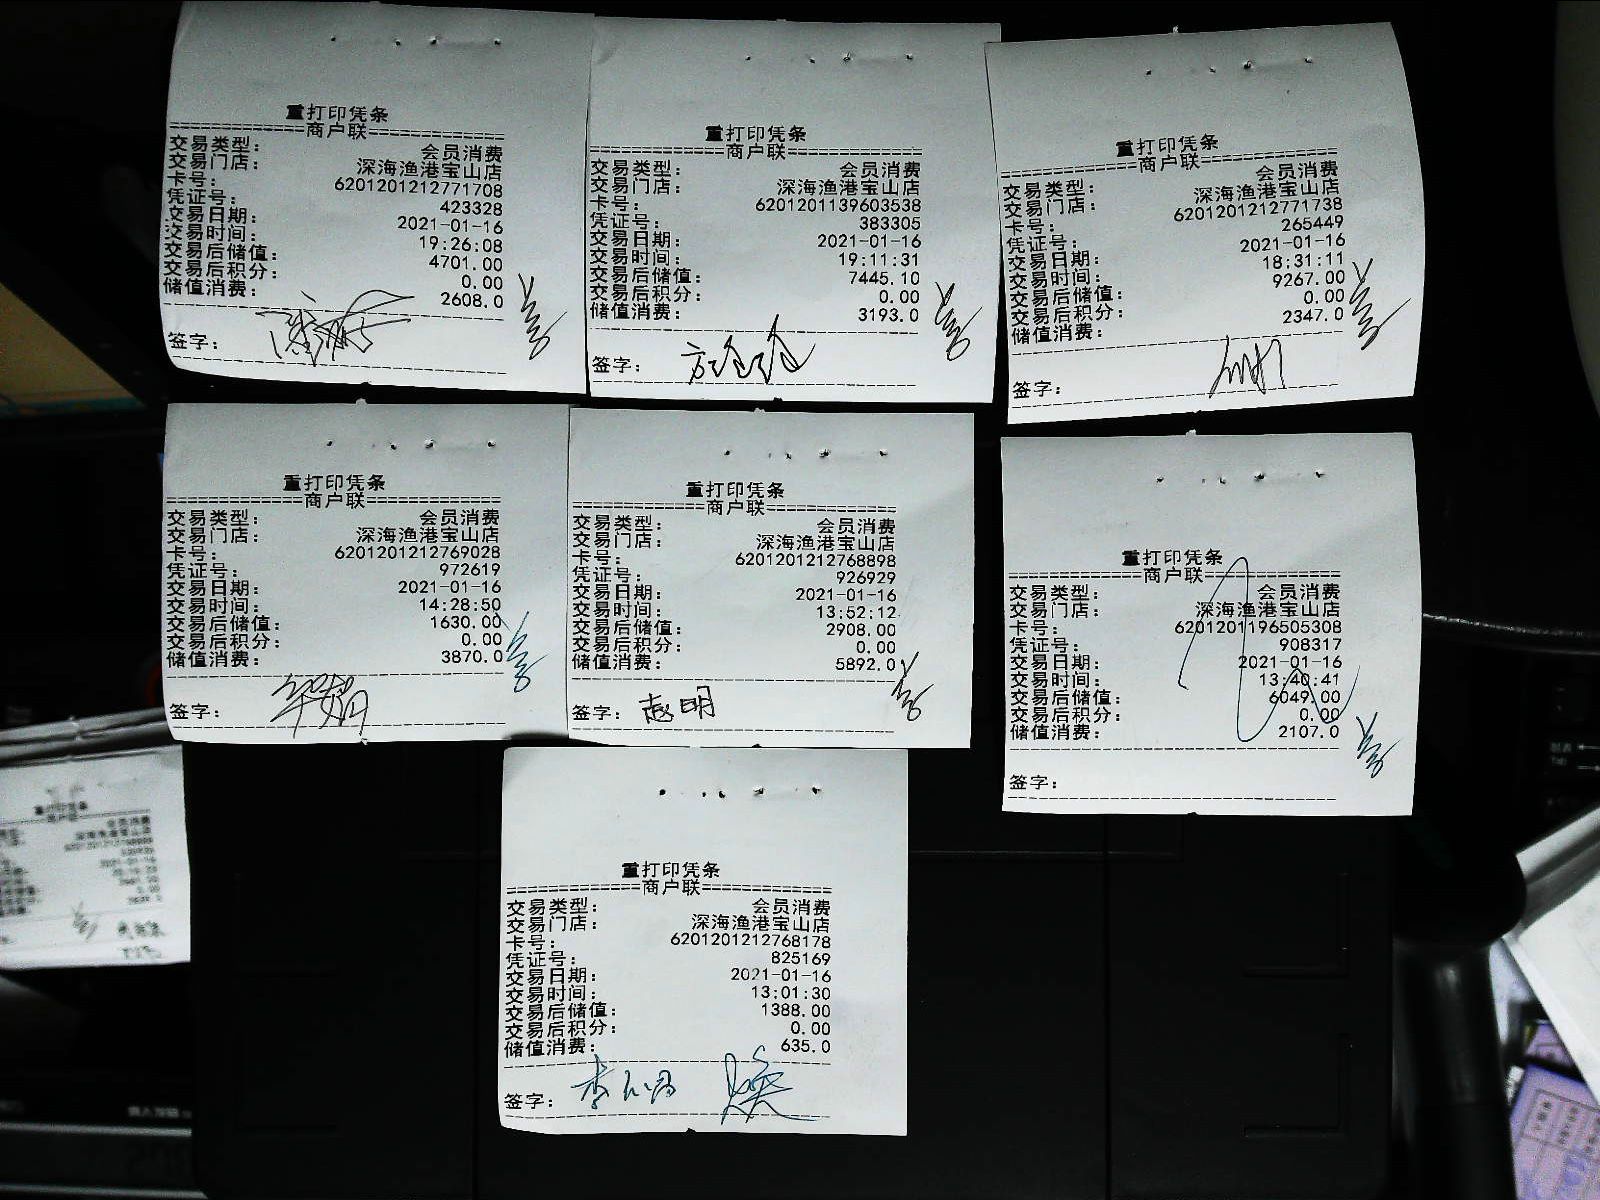 重打印凭条
================商户联================
交易类型： 会员消费
交易门店： 深海渔港宝山店
卡号： 6201201212771708
凭证号： 423328
交易日期： 2021-01-16
交易时间： 19:26:08
交易后储值： 4701.00
交易后积分： 0.00
储值消费： 2608.0
签字：
重打印凭条
================商户联================
交易类型： 会员消费
交易门店： 深海渔港宝山店
卡号： 6201201139603538
凭证号： 383305
交易日期： 2021-01-16
交易时间： 19:11:31
交易后储值： 7445.10
交易后积分： 0.00
储值消费： 3193.0
签字：
重打印凭条
================商户联================
交易类型： 会员消费
交易门店： 深海渔港宝山店
卡号： 6201201212771738
凭证号： 265449
交易日期： 2021-01-16
交易时间： 18:31:11
交易后储值： 9267.00
交易后积分： 0.00
储值消费： 2347.0
签字：
重打印凭条
================商户联================
交易类型： 会员消费
交易门店： 深海渔港宝山店
卡号： 6201201212769028
凭证号： 972619
交易日期： 2021-01-16
交易时间： 14:28:50
交易后储值： 1630.00
交易后积分： 0.00
储值消费： 3870.0
签字：
重打印凭条
================商户联================
交易类型： 会员消费
交易门店： 深海渔港宝山店
卡号： 6201201212768898
凭证号： 926929
交易日期： 2021-01-16
交易时间： 13:52:12
交易后储值： 2908.00
交易后积分： 0.00
储值消费： 5892.0
签字： 志明
重打印凭条
================商户联================
交易类型： 会员消费
交易门店： 深海渔港宝山店
卡号： 6201201196505308
凭证号： 908317
交易日期： 2021-01-16
交易时间： 13:40:41
交易后储值： 6049.00
交易后积分： 0.00
储值消费： 2107.0
签字：
重打印凭条
================商户联================
交易类型： 会员消费
交易门店： 深海渔港宝山店
卡号： 6201201212768178
凭证号： 825169
交易日期： 2021-01-16
交易时间： 13:01:30
交易后储值： 1388.00
交易后积分： 0.00
储值消费： 635.0
签字：